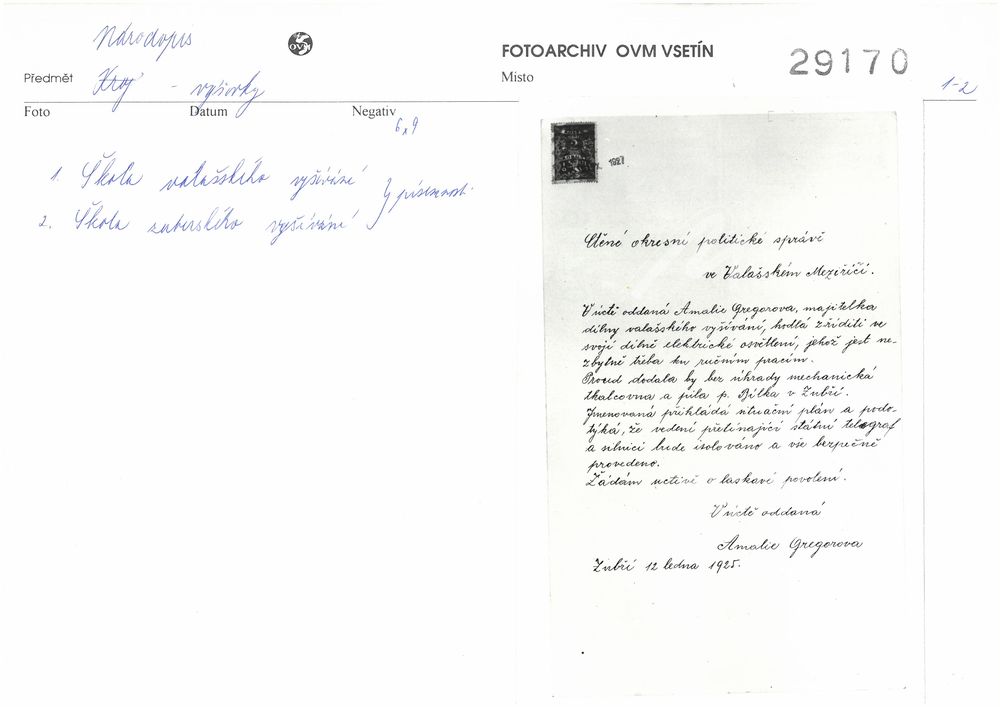 Národopis
OVM
FOTOARCHIV OVM VSETÍN
29170
Předmět Kroj - výšivky
Místo
1-2
Foto Datum Negativ
6x9
1. Škola valašského vyšívání
2. Škola zuberského vyšívání
} písemnosti
1927
Ctěné okresní politické správě
ve Valašském Meziříčí.
V úctě oddaná Amalie Gregorova, majitelka
dílny valašského vyšívání, hodlá zříditi ve
svojí dílně elektrické osvětlení, jehož jest ne-
zbytně třeba ku ručním pracím.
Proud dodala by bez úhrady mechanická
tkalcovna a pila p. Bílka v Zubří.
Jmenovaná přikládá situační plán a podo-
týká, že vedení přetínající státní telegraf
a silnici bude isolováno a vše bezpečně
provedeno.
Žádám uctivě o laskavé povolení.
V úctě oddaná
Amalie Gregorova
Zubří 12 ledna 1925.